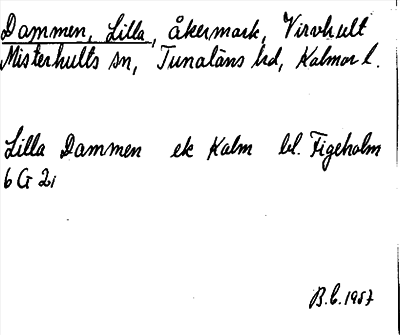 Dammen, Lilla, åkermark, Virvhult
Misterhults sn, Tunaläns hd, Kalmar l.
Lilla Dammen ek Kalm bl. Figeholm
6 G 2i
B.C. 1957